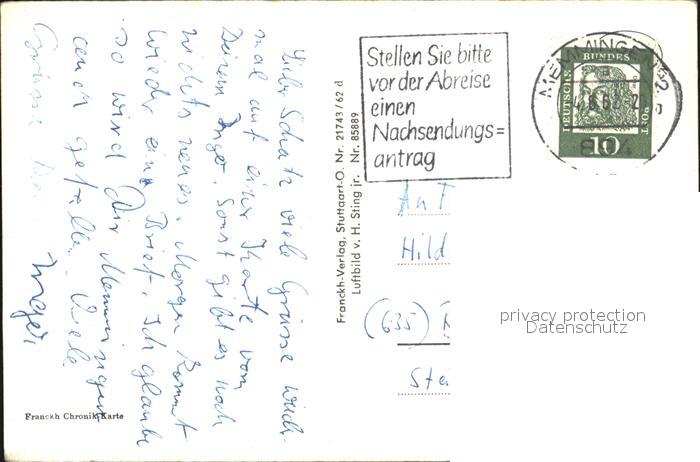 Liebe Schatz viele Grüsse
mal auf einer Karte vom
Deinem Inger. Sonst gibt es noch
nichts neues. Morgen kommt
wieder ein Brief. Ich glaube
so wird Dir Memmingen
auch gefallen. Viele
Grüsse Dein
Inger
Franckh Chronik Karte
Franckh-Verlag, Stuttgart-O. Nr. 21743/62 d
Luftbild v. H. Sting jr. Nr. 85889
Stellen Sie bitte
vor der Abreise
einen
Nachsendungs=
antrag
MEMMINGEN
DEUTSCHE BUNDESPOST
10
An F
Hild
(635)
Ste
privacy protection
Datenschutz